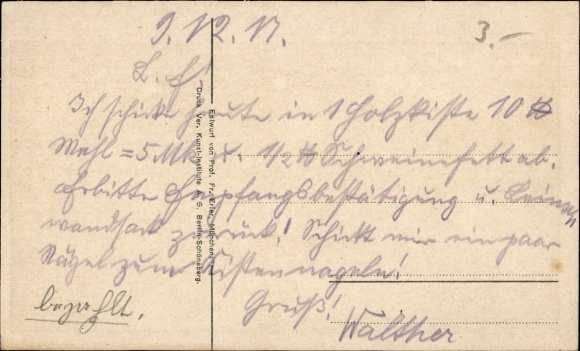 9.12.17.
3.–
L. E!
Ich schicke heute in 1 Holzkiste 10 ℔
Mehl = 5 Mk u. 1/2 ℔ Schweinefett ab.
Erbitte Empfangsbestätigung u. Lein-
wandsack zurück! Schickt mir ein paar
Nägel zum Kistennageln!
Gruß!
Walther
bezahlt.
Entwurf von Prof. Fr. Erler, München.
Druck Ver. Kunst-Institute A. G. Berlin-Schöneberg.